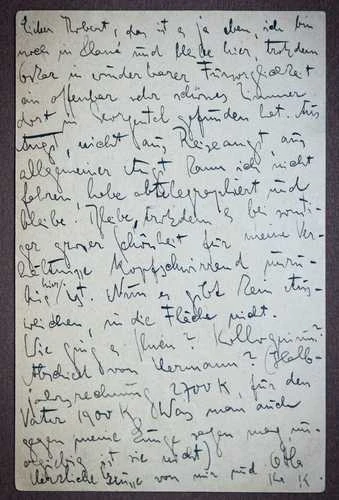 Lieber Robert, das ist es ja eben, ich bin
noch in Planá und bleibe hier, trotzdem
Oskar in wunderbarer Fürsorglichkeit
ein offenbar sehr schönes Zimmer
dort in Georgental gefunden hat. Aus
Angst, nicht aus Reiseangst, aus
allgemeiner Angst kann ich nicht
fahren, habe abtelegraphiert und
bleibe. Bleibe, trotzdem es bei sonsti-
ger grosser Schönheit für meine Ver-
hältnisse kopfschwirrend unru-
hig hier ist. Nun es gibt kein Aus-
weichen, in die Fläche nicht.
Wie ging es Ihnen? Kolloquium?
Abschied von Hermann? (Halb-
jahrsrechnung 2700 K, für den
Vater 1900 K. Was man auch
gegen meine Lunge sagen mag, un-
ergiebig ist sie nicht)
Herzliche Grüsse von mir und Ottla
Ihr K